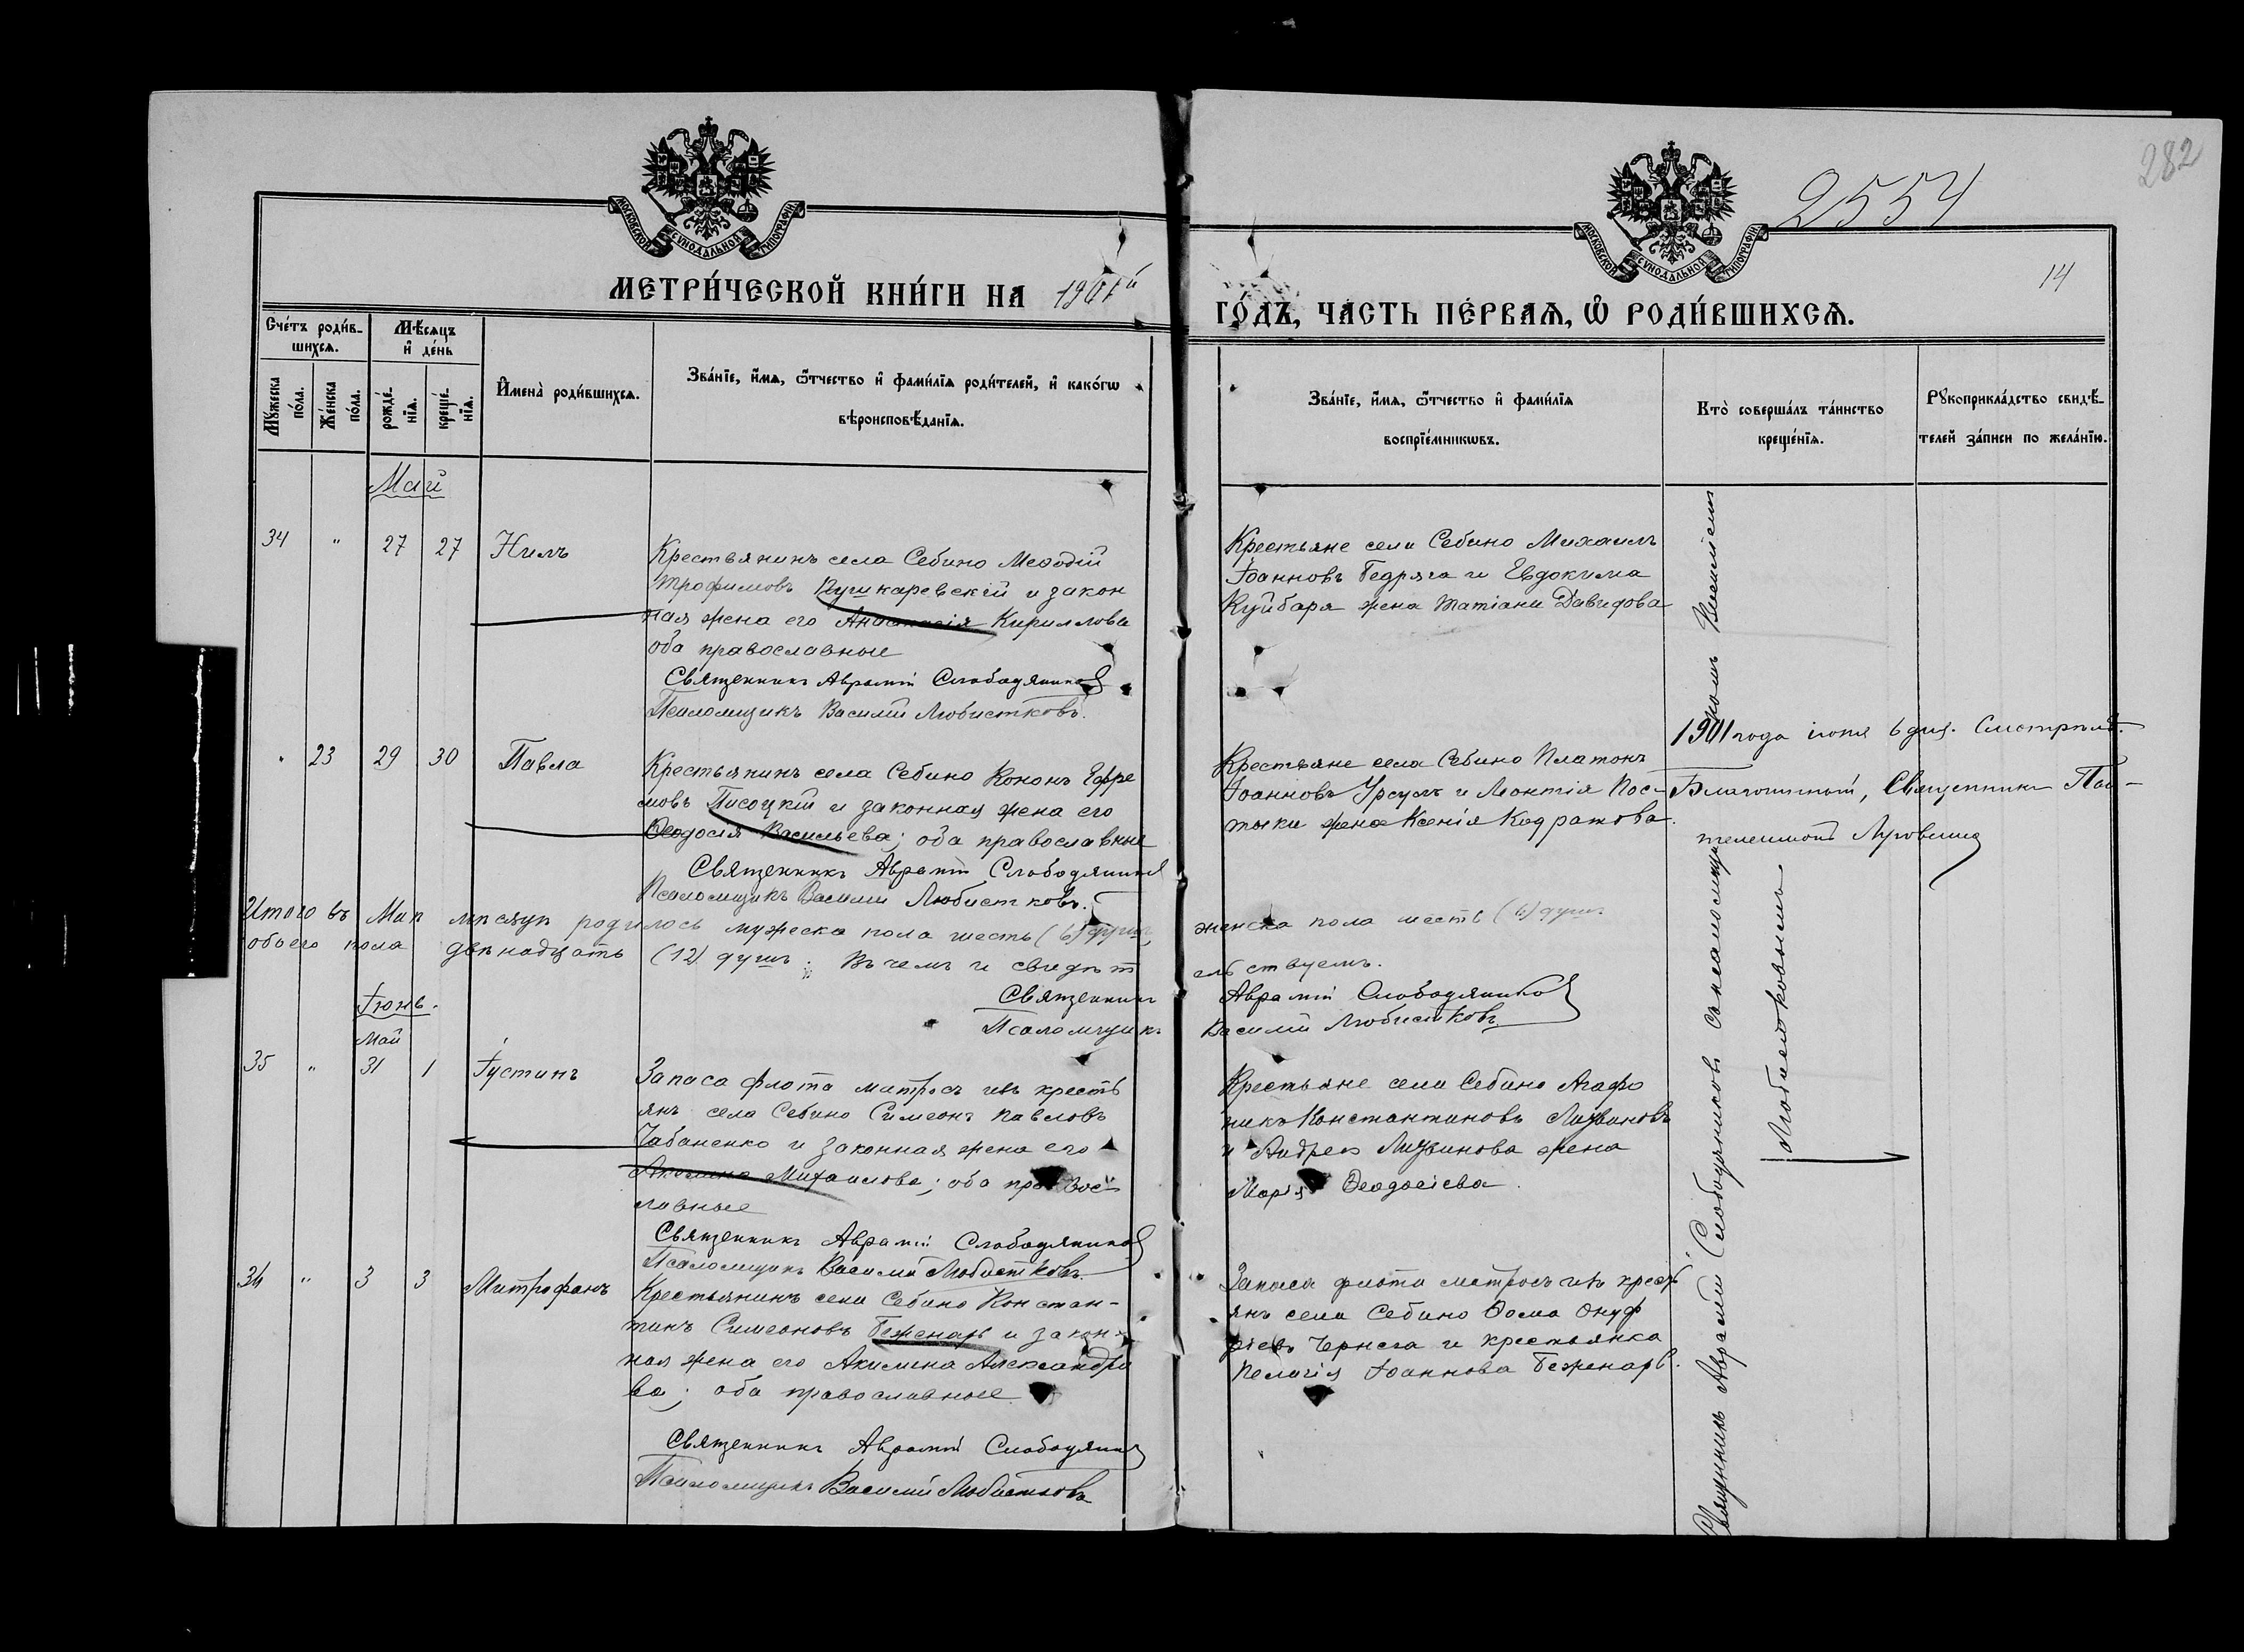 282
2554
14
МОСКОВСКОЙ СУНОДАЛЬНОЙ ТИПОГРАФІИ
МОСКОВСКОЙ СУНОДАЛЬНОЙ ТИПОГРАФІИ
МЕТРИ́ЧЕСКОЙ КНИ́ГИ НА 1901й
ГО́ДЪ, ЧА́СТЬ ПЕ́РВАѦ, Ѡ҆ РОДИ́ВШИХСѦ.
Сче́тъ роди́в-
шихсѧ.
Мѣ́сѧцъ
и҆ де́нь
Мꙋ́жеска
по́ла.
Же́нска
по́ла.
рожде́-
нїѧ.
креще́-
нїѧ.
И҆мена̀ роди́вшихсѧ.
Зва́нїе, и҆́мѧ, ѻ҆́тчество и҆ фами́лїѧ роди́телей, и҆ како́гѡ
вѣроисповѣ́данїѧ.
Зва́нїе, и҆́мѧ, ѻ҆́тчество и҆ фами́лїѧ
воспрїе́мникѡвъ.
Кто̀ соверша́лъ та́инство
креще́нїѧ.
Рꙋкоприкла́дство свидѣ́-
телей за́писи по жела́нїю.
Май
34 " 27 27 Нилъ
Крестьянинъ села Себино Меѳодій
Трофимовъ Пушкаревскій и закон
ная жена его Анастасія Кириллова
оба православные
Священникъ Аврамій Слободяников
Псаломщикъ Василій Любистковъ.
Крестьяне села Себино Михаилъ
Іоанновъ Бедряга и Евдокима
Куйбаря жена Татіана Давидова
" 23 29 30 Павла
Крестьянинъ села Себино Кононъ Ефре
мовъ Писоцкій и законная жена его
Ѳеодосія Васильева; оба православные
Священникъ Аврамій Слободяников
Псаломщикъ Василій Любистковъ.
Крестьяне села Себино Платонъ
Іоанновъ Урсулъ и Леонтія Пос-
тыки жена Ксенія Кодратова.
1901 года іюня 6 дня. Смотрѣлъ.
Благочинный, Священникъ Пан-
телеимонъ
Итого въ Маѣ мѣсяцѣ родилось мужеска пола шесть (6) душъ, женска пола шесть (6) душъ
обоего пола двѣнадцать (12) душъ. Въ чемъ и свидѣтельствуемъ.
Священникъ Аврамій Слободяников
Псаломщикъ Василій Любистковъ
Іюнь.
Май
35 " 31 1 Іустинъ
Запаса флота матросъ изъ кресть
янъ села Себино Симеонъ Павловъ
Чабаненко и законная жена его
Акилина Михаилова; оба правос
лавные
Священникъ Аврамій Слободяников
Псаломщикъ Василій Любистковъ.
Крестьяне села Себино Агафо
никъ Константиновъ Лизвиновъ
и Андрея Лизвинова жена
Марія Ѳеодосіева.
36 " 3 3 Митрофанъ
Крестьянинъ села Себино Констан-
тинъ Симеоновъ Беженарь и закон-
ная жена его Акилина Александро
ва; оба православные
Священникъ Аврамій Слободяников
Псаломщикъ Василій Любистковъ
Запаса флота матросъ изъ кресть
янъ села Себино Ѳома Онуф
ріевъ Чернега и крестьянка
Пелагія Іоаннова Беженарь.
Священникъ Аврамій Слободяников съ псаломщикомъ Василіемъ
Любистковымъ